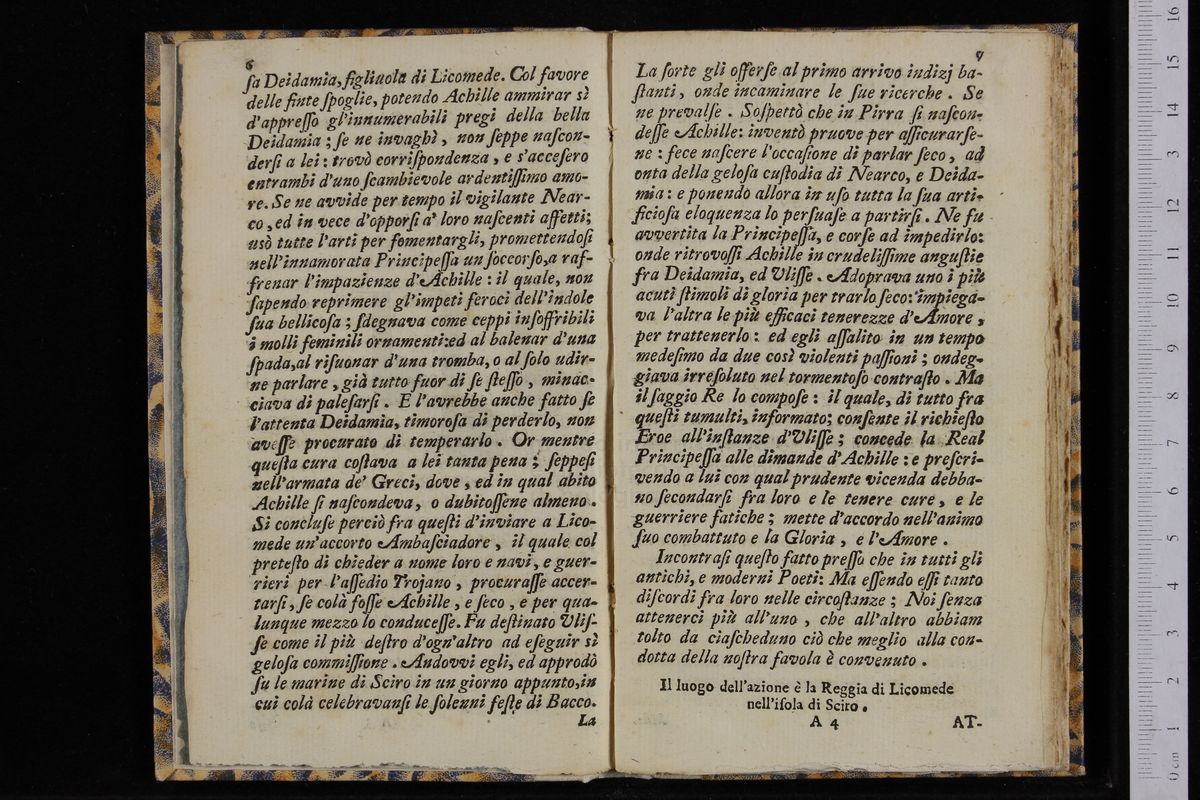 6
ſa Deidamia, figliuola di Licomede. Col favore
delle finte ſpoglie, potendo Achille ammirar sì
d'appreſſo gl'innumerabili pregi della bella
Deidamia ; ſe ne invaghì , non ſeppe naſcon-
derſi a lei : trovò corriſpondenza , e s'acceſero
entrambi d'uno ſcambievole ardentiſſimo amo-
re. Se ne avvide per tempo il vigilante Near-
co , ed in vece d'opporſi a' loro naſcenti affetti;
usò tutte l'arti per fomentargli, promettendoſi
nell'innamorata Principeſſa un ſoccorſo, a raf-
frenar l'impazienze d'Achille : il quale, non
ſapendo reprimere gl'impeti feroci dell'indole
ſua bellicoſa ; ſdegnava come ceppi inſoffribili
i molli feminili ornamenti: ed al balenar d'una
ſpada, al riſuonar d'una tromba, o al ſolo udir-
ne parlare , già tutto fuor di ſe ſteſſo , minac-
ciava di paleſarſi . E l'avrebbe anche fatto ſe
l'attenta Deidamia, timoroſa di perderlo, non
aveſſe procurato di temperarlo . Or mentre
queſta cura coſtava a lei tanta pena ; ſeppeſi
nell'armata de' Greci, dove , ed in qual abito
Achille ſi naſcondeva, o dubitoſſene almeno .
Si concluſe perciò fra queſti d'inviare a Lico-
mede un'accorto Ambaſciadore , il quale col
preteſto di chieder a nome loro e navi, e guer-
rieri per l'aſſedio Trojano , procuraſſe accer-
tarſi, ſe colà foſſe Achille , e ſeco , e per qua-
lunque mezzo lo conduceſſe. Fu deſtinato Uliſ-
ſe come il più deſtro d'ogn'altro ad eſeguir sì
geloſa commiſſione . Andovvi egli, ed approdò
ſu le marine di Sciro in un giorno appunto, in
cui colà celebravanſi le ſolenni feſte di Bacco.
La
7
La ſorte gli offerſe al primo arrivo indizj ba-
ſtanti , onde incaminare le ſue ricerche . Se
ne prevalſe . Soſpettò che in Pirra ſi naſcon-
deſſe Achille: inventò pruove per aſſicurarſe-
ne : fece naſcere l'occaſione di parlar ſeco , ad
onta della geloſa cuſtodia di Nearco, e Deida-
mia : e ponendo allora in uſo tutta la ſua arti-
ficioſa eloquenza lo perſuaſe a partirſi . Ne fu
avvertita la Principeſſa, e corſe ad impedirlo:
onde ritrovoſſi Achille in crudeliſſime anguſtie
fra Deidamia, ed Uliſſe . Adoprava uno i più
acuti ſtimoli di gloria per trarlo ſeco: impiega-
va l'altra le più efficaci tenerezze d'Amore ,
per trattenerlo : ed egli aſſalito in un tempo
medeſimo da due così violenti paſſioni ; ondeg-
giava irreſoluto nel tormentoſo contraſto . Ma
il ſaggio Re lo compoſe : il quale, di tutto fra
queſti tumulti, informato; conſente il richieſto
Eroe all'inſtanze d'Uliſſe ; concede la Real
Principeſſa alle dimande d'Achille : e preſcri-
vendo a lui con qual prudente vicenda debba-
no ſecondarſi fra loro e le tenere cure , e le
guerriere fatiche ; mette d'accordo nell'animo
ſuo combattuto e la Gloria , e l'Amore .
Incontraſi queſto fatto preſſo che in tutti gli
antichi, e moderni Poeti: Ma eſſendo eſſi tanto
diſcordi fra loro nelle circoſtanze ; Noi ſenza
attenerci più all'uno , che all'altro abbiam
tolto da ciaſcheduno ciò che meglio alla con-
dotta della noſtra favola è convenuto .
Il luogo dell'azione è la Reggia di Licomede
nell'iſola di Sciro .
A 4 AT-
0 cm 1 2 3 4 5 6 7 8 9 10 11 12 13 14 15 16